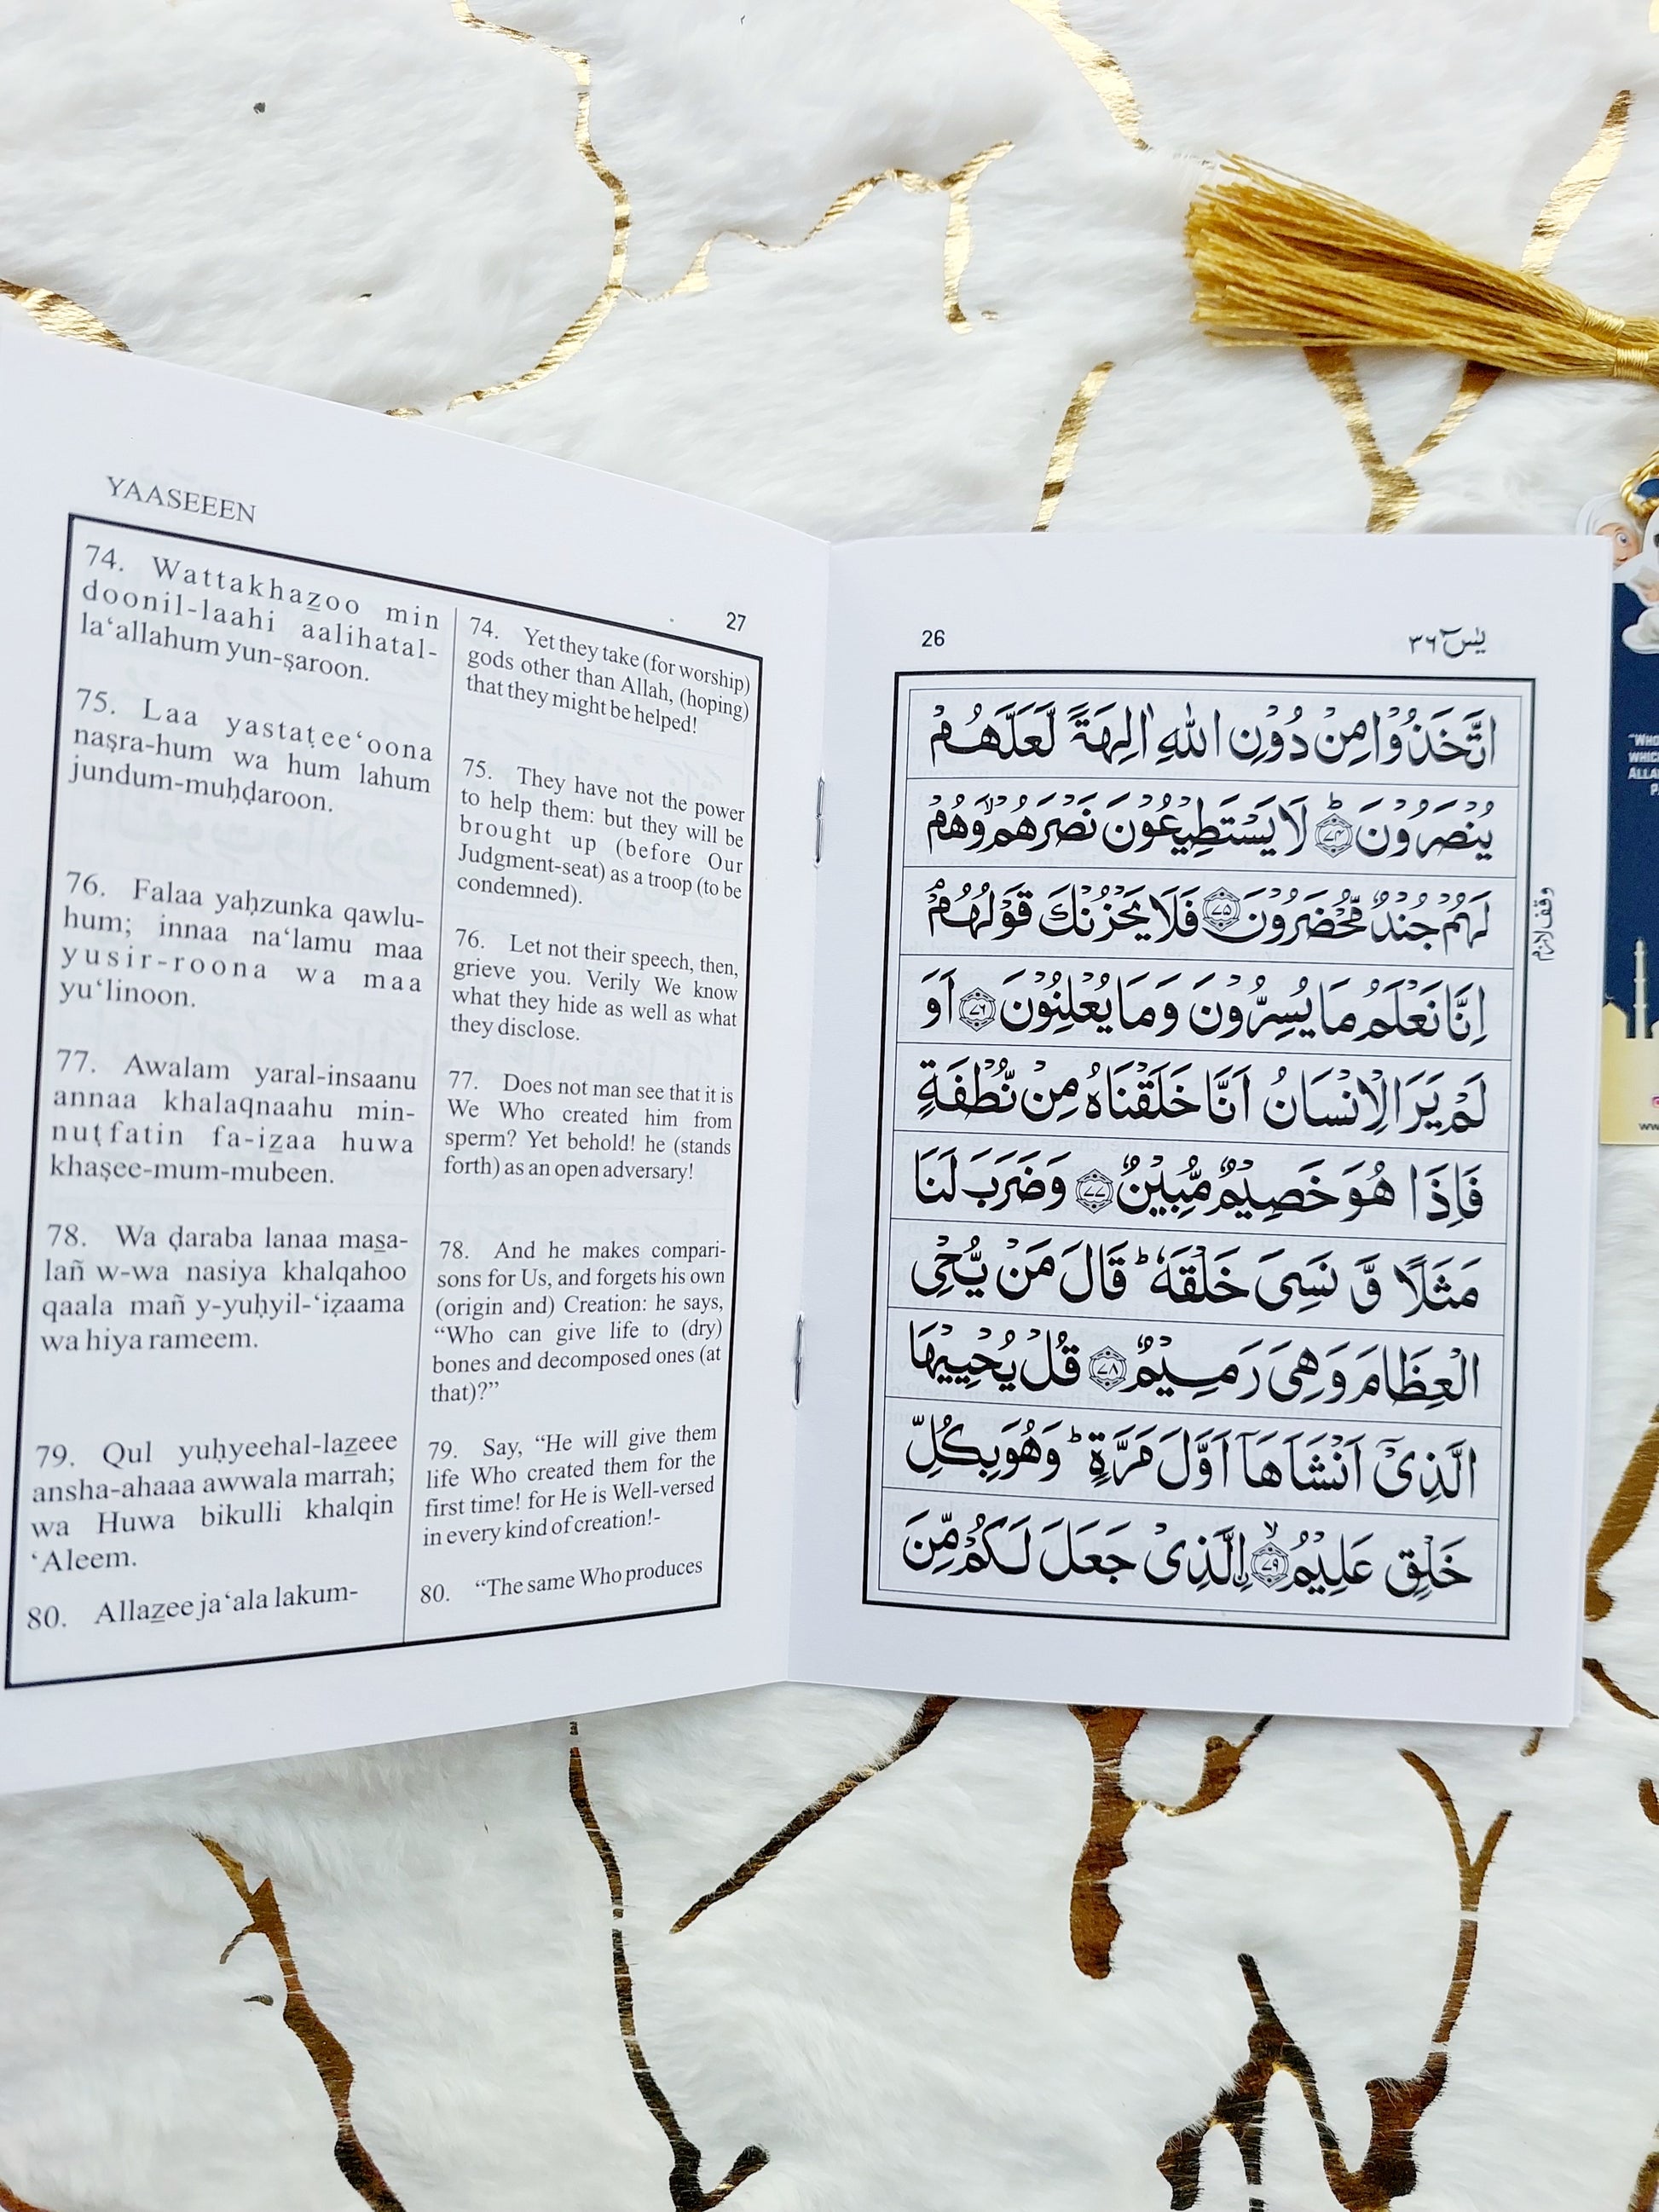 YAASEEEN
27
74. Wattakhazoo min
doonil-laahi aalihatal-
la‘allahum yun-ṣaroon.
75. Laa yastaṭee‘oona
naṣra-hum wa hum lahum
jundum-muḥḍaroon.
76. Falaa yaḥzunka qawlu-
hum; innaa na‘lamu maa
yusir-roona wa maa
yu‘linoon.
77. Awalam yaral-insaanu
annaa khalaqnaahu min-
nuṭfatin fa-izaa huwa
khaṣee-mum-mubeen.
78. Wa ḍaraba lanaa masa-
lañ w-wa nasiya khalqahoo
qaala mañ y-yuḥyil-‘iẓaama
wa hiya rameem.
79. Qul yuḥyeehal-lazeee
ansha-ahaaa awwala marrah;
wa Huwa bikulli khalqin
‘Aleem.
80. Allazee ja‘ala lakum-
74. Yet they take (for worship)
gods other than Allah, (hoping)
that they might be helped!
75. They have not the power
to help them: but they will be
brought up (before Our
Judgment-seat) as a troop (to be
condemned).
76. Let not their speech, then,
grieve you. Verily We know
what they hide as well as what
they disclose.
77. Does not man see that it is
We Who created him from
sperm? Yet behold! he (stands
forth) as an open adversary!
78. And he makes compari-
sons for Us, and forgets his own
(origin and) Creation: he says,
“Who can give life to (dry)
bones and decomposed ones (at
that)?”
79. Say, “He will give them
life Who created them for the
first time! for He is Well-versed
in every kind of creation!-
80. “The same Who produces
26
يٰسٓ ٣٦
اتَّخَذُوْا مِنْ دُوْنِ اللّٰهِ اٰلِهَةً لَّعَلَّهُمْ
يُنْصَرُوْنَ ؕ﴿۷۴﴾ لَا يَسْتَطِيْعُوْنَ نَصْرَهُمْ ۙ وَهُمْ
لَهُمْ جُنْدٌ مُّحْضَرُوْنَ ﴿۷۵﴾ فَلَا يَحْزُنْكَ قَوْلُهُمْ ۘ
اِنَّا نَعْلَمُ مَا يُسِرُّوْنَ وَمَا يُعْلِنُوْنَ ﴿۷۶﴾ اَوَ
لَمْ يَرَ الْاِنْسَانُ اَنَّا خَلَقْنَاهُ مِنْ نُّطْفَةٍ
فَاِذَا هُوَ خَصِيْمٌ مُّبِيْنٌ ﴿۷۷﴾ وَضَرَبَ لَنَا
مَثَلًا وَّ نَسِىَ خَلْقَهٗ ؕ قَالَ مَنْ يُّحْىِ
الْعِظَامَ وَهِىَ رَمِيْمٌ ﴿۷۸﴾ قُلْ يُحْيِيْهَا
الَّذِىْٓ اَنْشَاَهَآ اَوَّلَ مَرَّةٍ ؕ وَهُوَ بِكُلِّ
خَلْقٍ عَلِيْمُ ۙ﴿۷۹﴾ اِ۟لَّذِىْ جَعَلَ لَكُمْ مِّنَ
وقف لازم
“WHO
WHIC
ALLA
P
WW